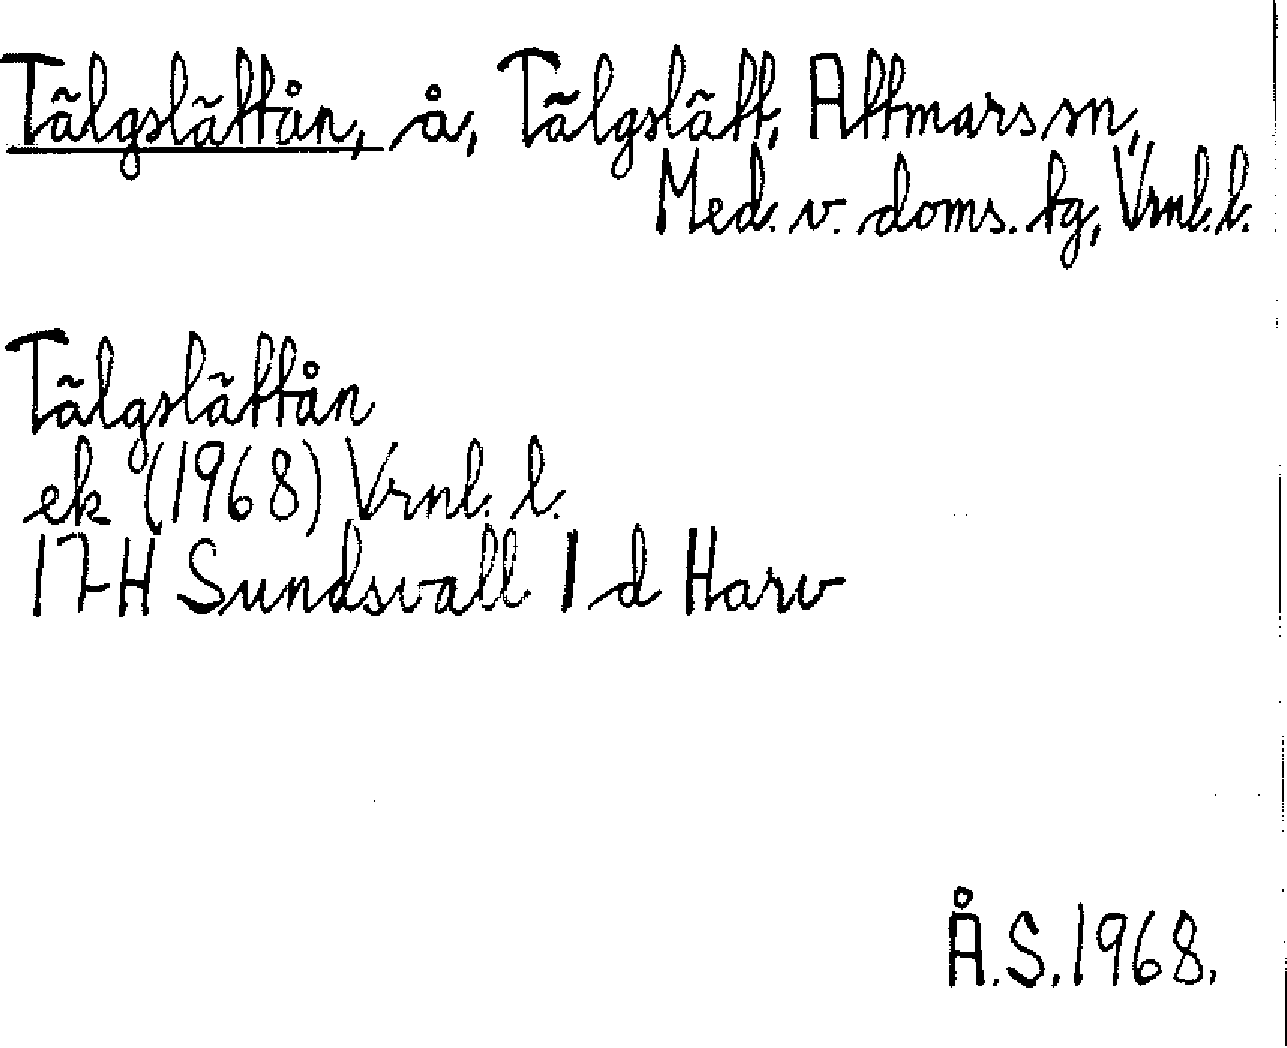 Tälgslättån, å, Tälgslätt, Attmars sn,
Med. v. doms. tg, Vrnl. l.
Tälgslättån
ek (1968) Vrnl. l.
17H Sundsvall 1 d Harv
Å.S. 1968.